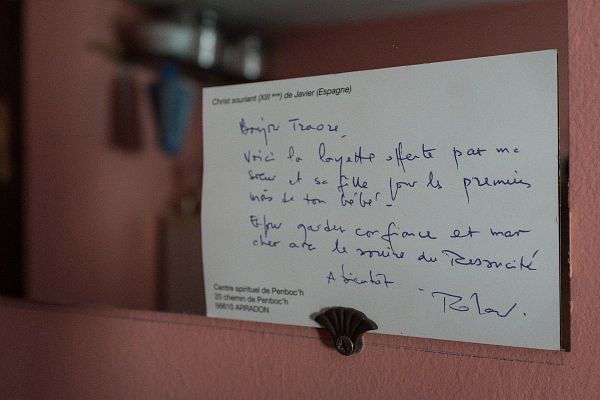 Christ souriant (XIII ème) de Javier (Espagne)
Bonjour Traore,
Voici la layette offerte par ma
sœur et sa fille pour les premiers
mois de ton bébé.
Et pour garder confiance et mar
cher avec le sourire du Ressuscité
A bientôt
Centre spirituel de Penboc'h
20 chemin de Penboc'h
56610 ARRADON